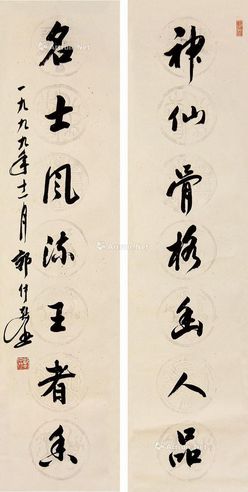 神仙骨格幽人品
名士风流王者香
一九九九年十一月 郭仲